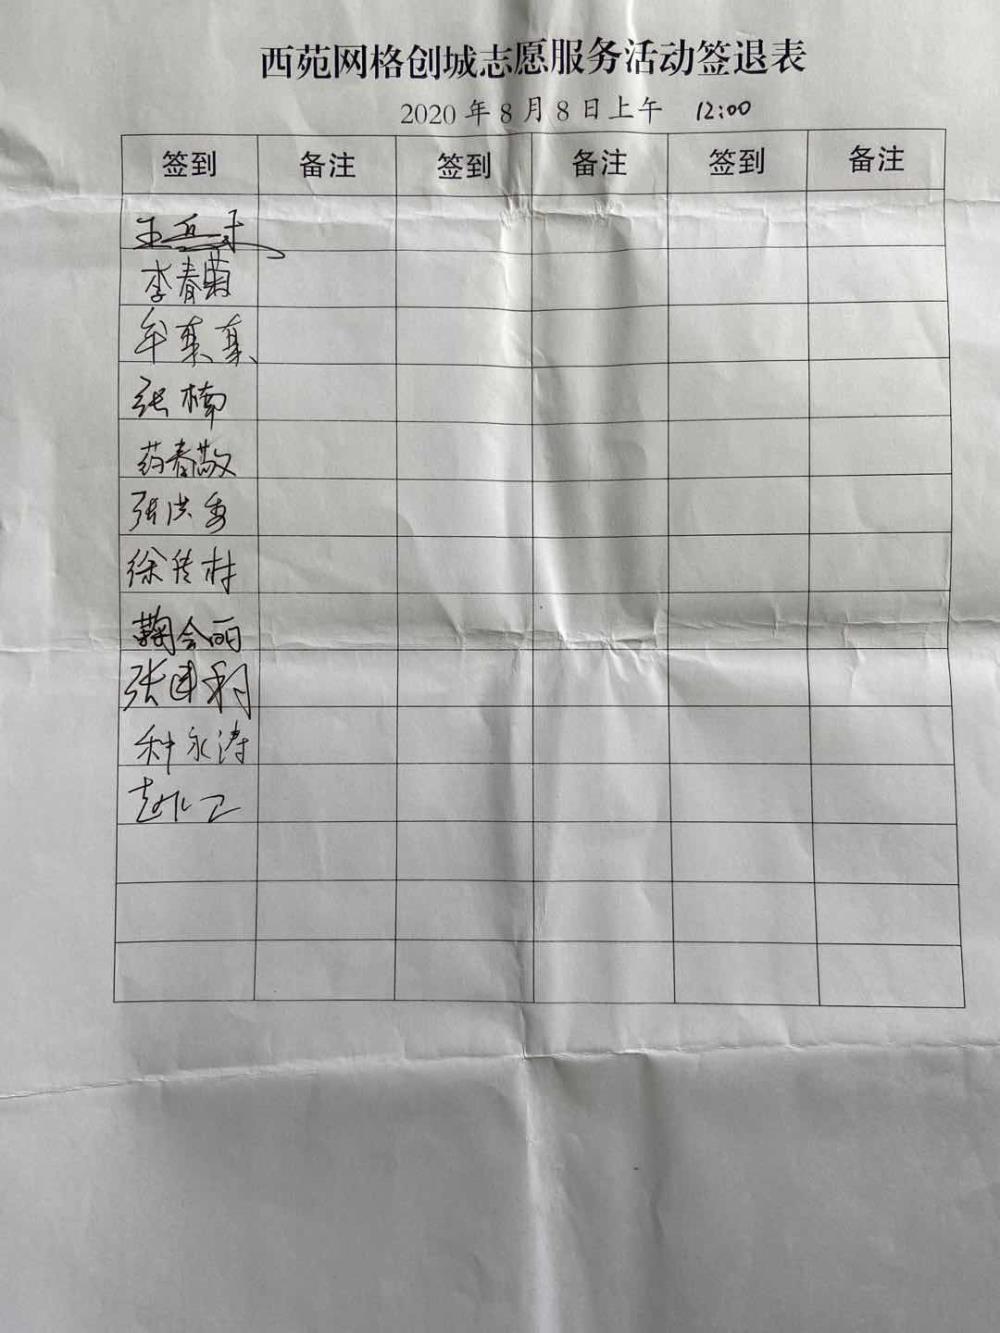 西苑网格创城志愿服务活动签退表
2020年8月8日上午 12:00
签到 备注 签到 备注 签到 备注
李春菊
牟英英
张楠
药春敬
张洪
徐传村
鞠会丽
张建利
种永涛